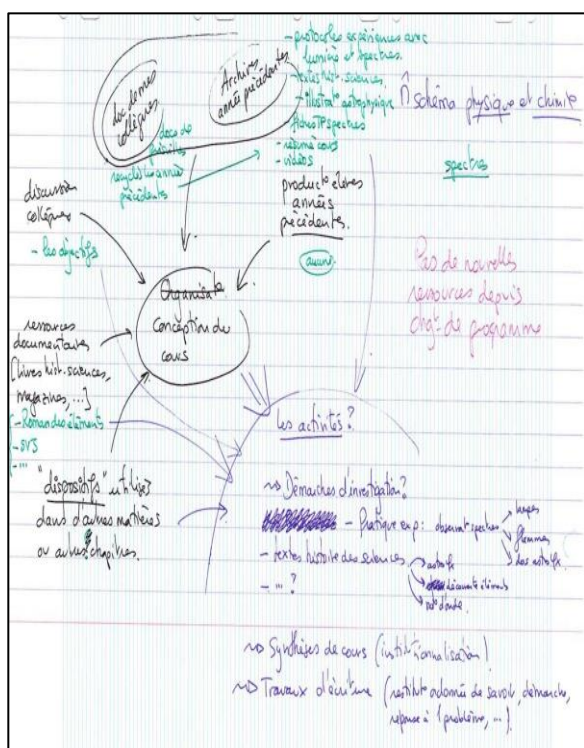 docs des collègues
Archives
année précédentes
- protocoles expériences avec
lumière et spectres.
- textes hist. sciences.
- illustrat° astrophysique
- fiches TP spectres
- résumé cours
- vidéos
schéma physique et chimie
spectres
docs de
recyclés les années
précédentes
product° élèves
années
précédentes.
aucune
discussion
collègues
- les objectifs
Organisat°
Conception du
cours
Pas de nouvelles
ressources depuis
chgt de programme
ressources
documentaires
[livres hist. sciences,
magazines, ...]
- Roman des éléments
- SVS
- ...
"dispositifs" utilisés
dans d'autres matières
ou autres chapitres.
les activités ?
Démarches d'investigation ?
- Pratique exp : observat° spectres
lampes
flammes
docs astroφ.
- textes histoire des sciences
astroφ
découverte éléments
- ... ?
Synthèses de cours (institutionnalisation)
Travaux d'écriture (restitut° de savoir, démarche,
réponse à 1 problème, ...).